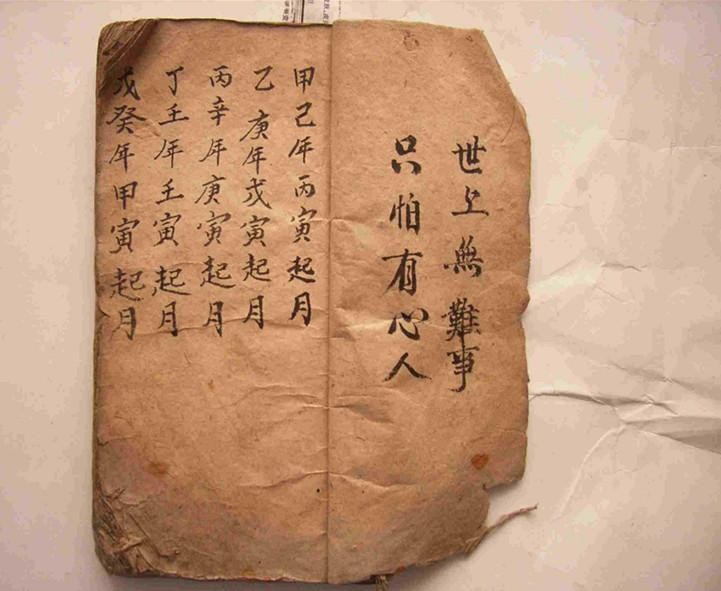 世上無難事
只怕有心人
甲己年丙寅起月
乙庚年戊寅起月
丙辛年庚寅起月
丁壬年壬寅起月
戊癸年甲寅起月